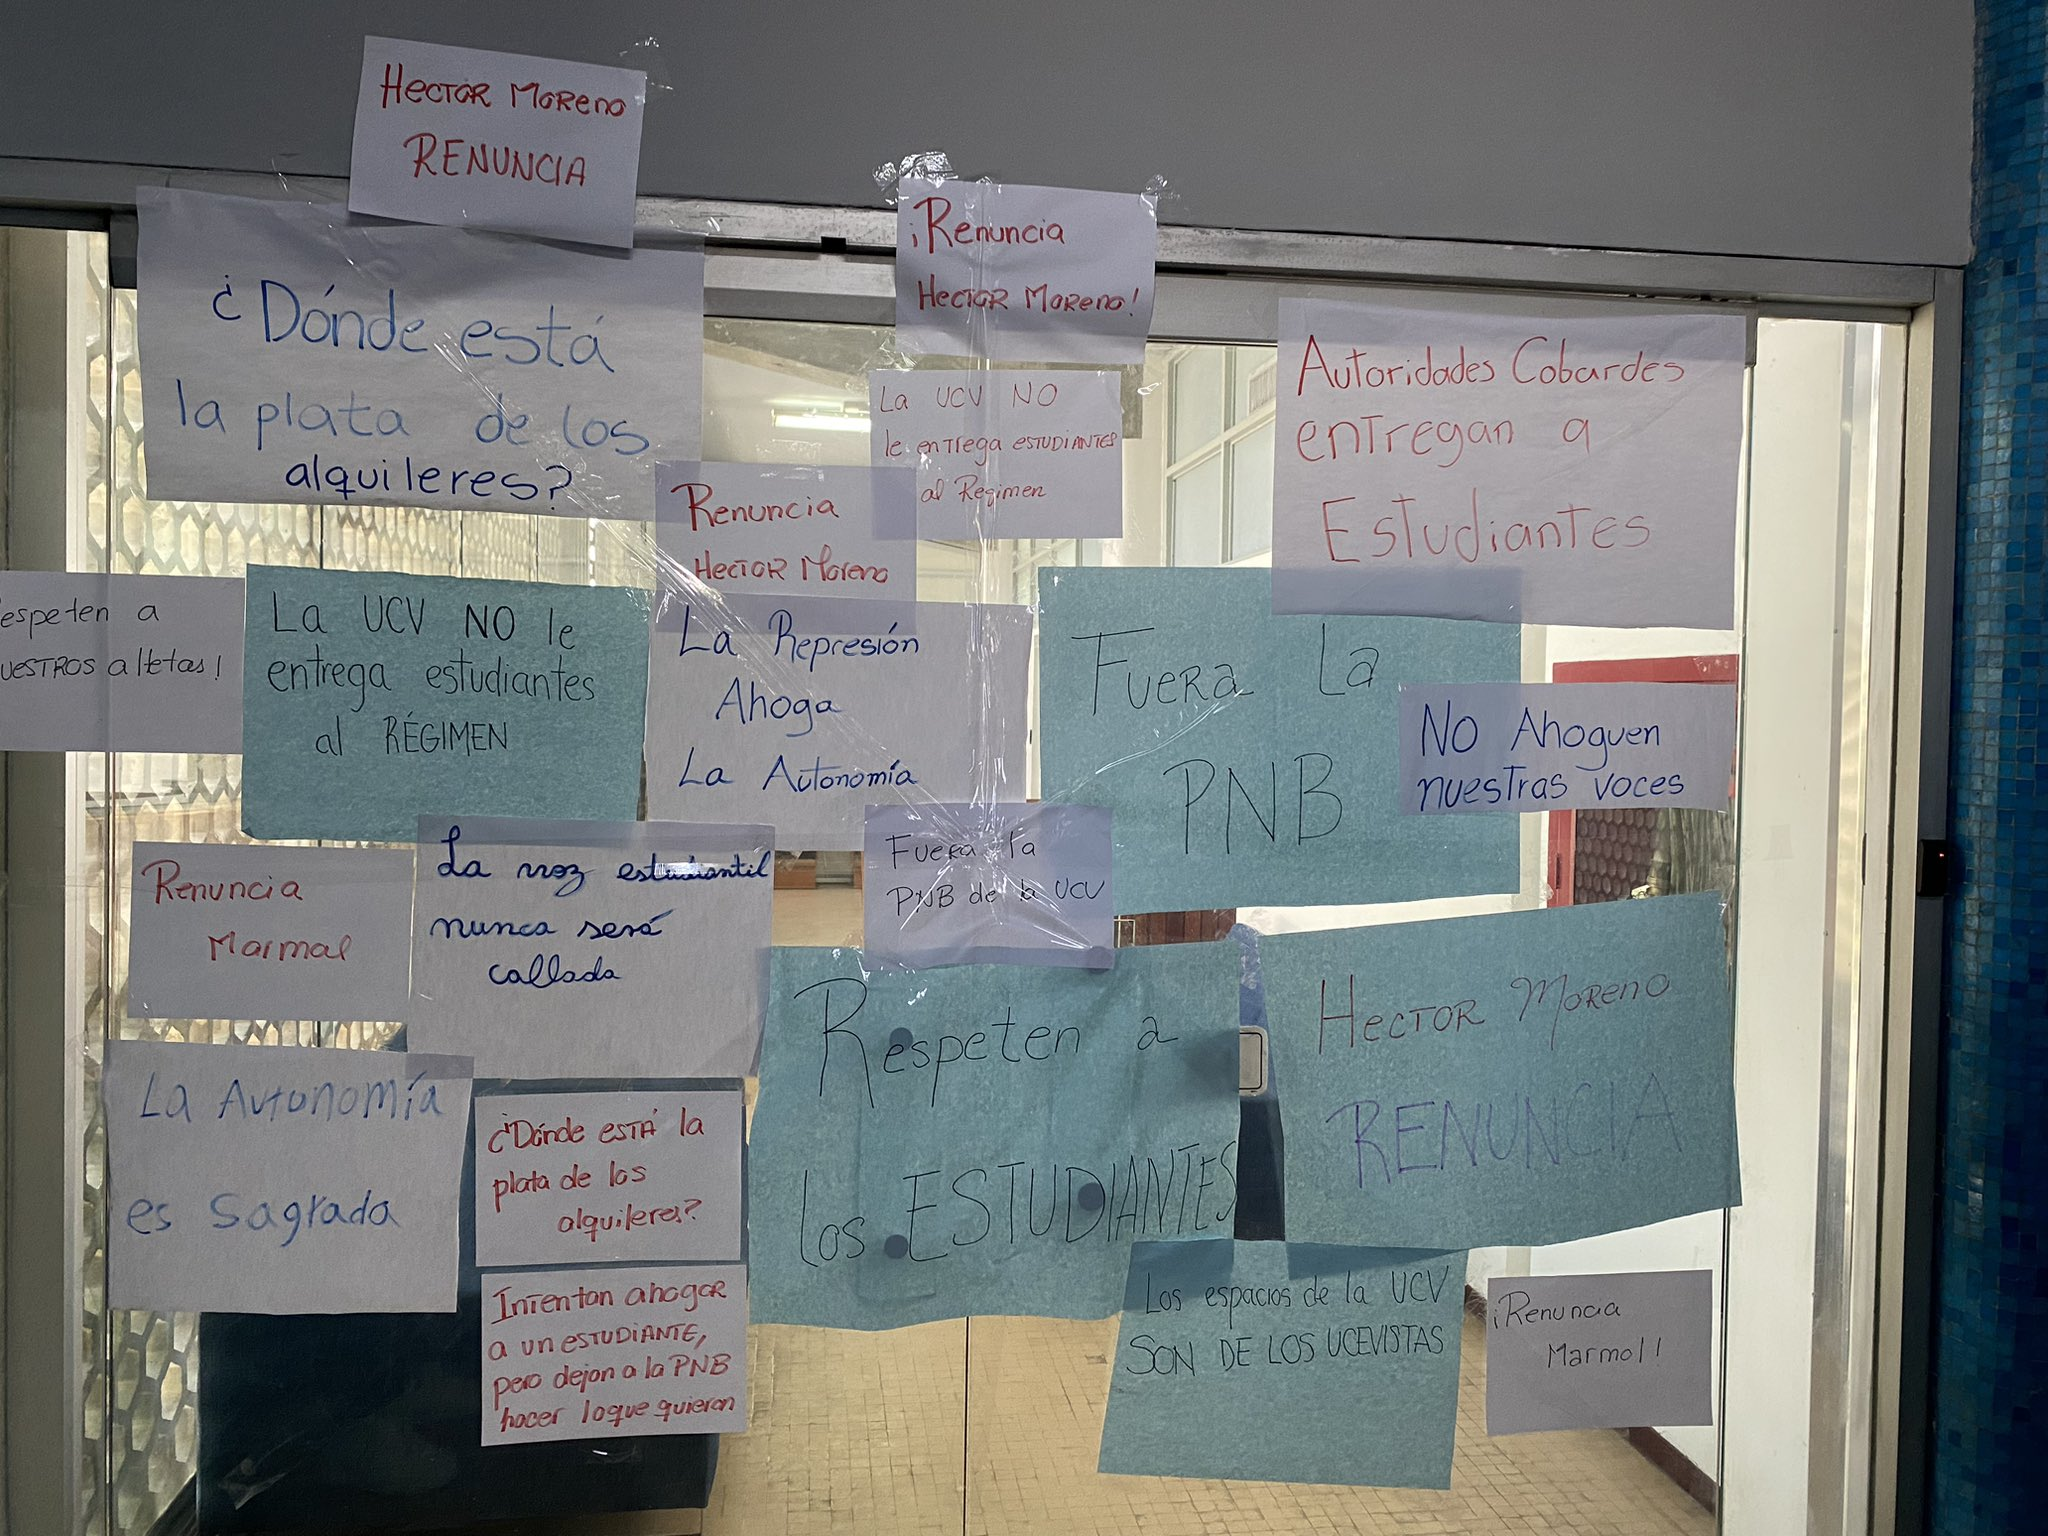 HECTOR MORENO
RENUNCIA
¡Renuncia
HECTOR MORENO!
¿Dónde está
la plata de los
alquileres?
Autoridades Cobardes
entregan a
Estudiantes
La UCV NO
le entrega ESTUDIANTES
al Regimen
Renuncia
HECTOR Moreno
espeten a
UESTROS alletas!
La UCV NO le
entrega estudiantes
al RÉGIMEN
La Represión
Ahoga
La Autonomía
Fuera La
PNB
NO Ahoguen
nuestras voces
Renuncia
Marmal
La voz estudiantil
nunca será
callada
Fuera la
PNB de la UCV
Respeten a
los ESTUDIANTES
HECTOR MORENO
RENUNCIA
La Autonomía
es Sagrada
¿Dónde ESTÁ la
plata de los
alquileres?
Intentan ahogar
a un ESTUDIANTE,
pero dejan a la PNB
hacer lo que quieran
Los espacios de la UCV
SON DE LOS UCEVISTAS
¡Renuncia
Marmol!